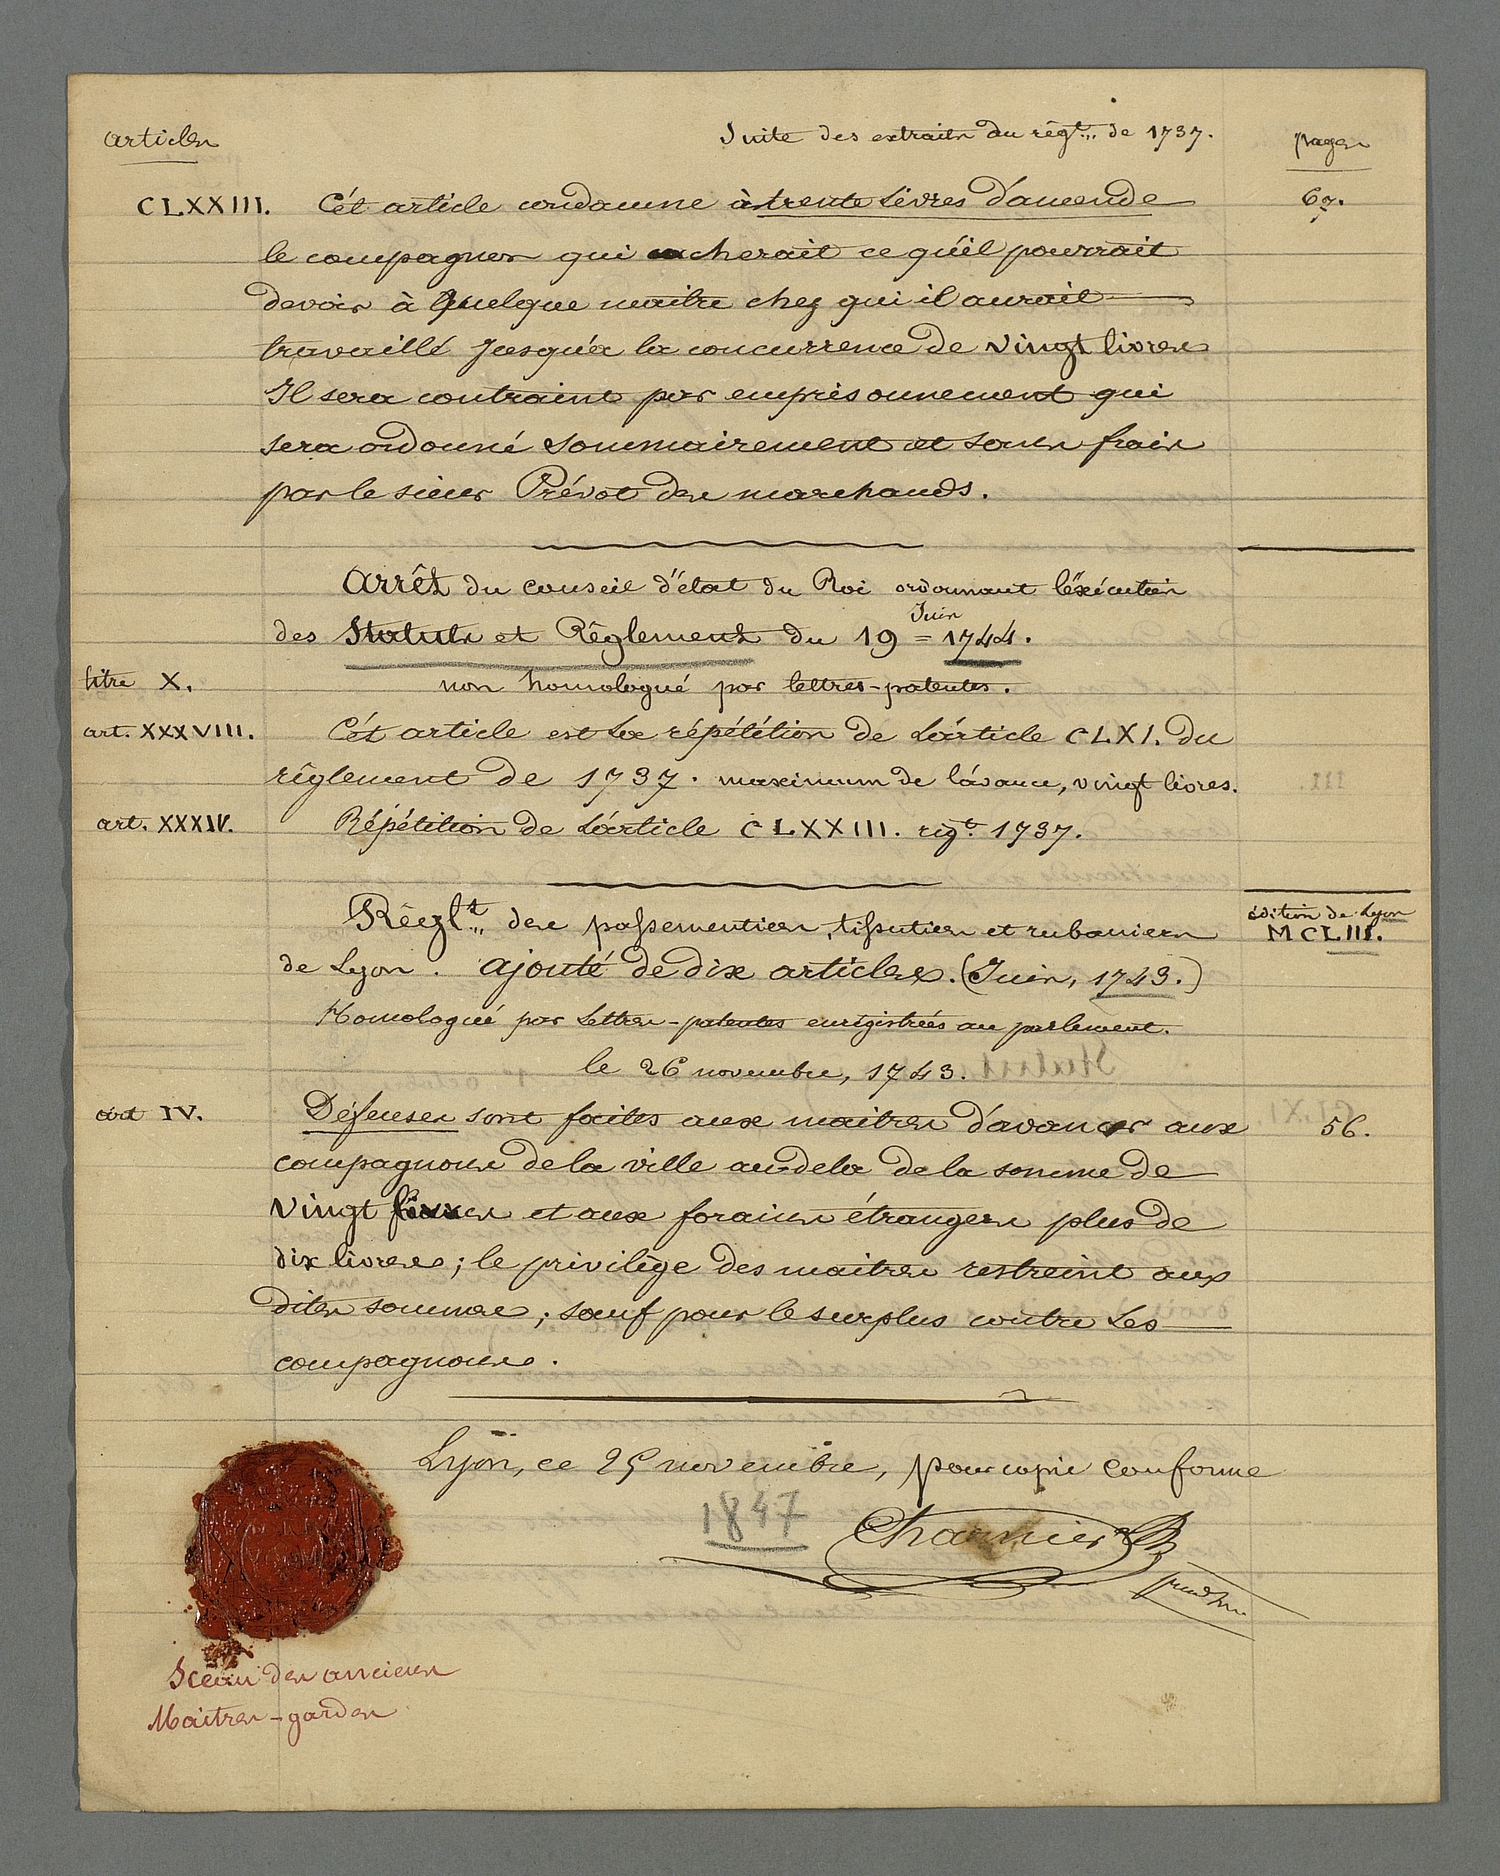 articles
Suite des extraits du règt. de 1737.
pages
CLXXIII. Cét article condamne à trente Livres d'amende 67.
le compagnon qui cacherait ce qu'il pourrait
devoir à quelque maitre chez qui il aurait
travaillé jusqu'à la concurrence de vingt livres
Il sera contraint par emprisonnement qui
sera ordonné sommairement et sans frais
par le sieur Prévot des marchands.
Arrêt du conseil d'état du Roi ordonnant l'éxécution
des Statuts et Règlement du 19 = Juin 1744.
titre X. non homologué par lettres-patentes.
art. XXXVIII. Cét article est la répétition de l'article CLXI. du
règlement de 1737. maximum de l'avance, vingt livres.
art. XXXIV. Répétition de l'article CLXXIII. rigt. 1737.
Règlt. des passementiers, tissutiers et rubaniers
édition de Lyon
MCLIII.
de Lyon. ajouté de dix articles. (Juin, 1743.)
Homologué par Lettres-patentes enrégistrées au parlement.
le 26 novembre, 1743.
art IV. Défenses sont faites aux maitres d'avancer aux 56.
compagnons de la ville au-dela de la somme de
vingt livres et aux forains étrangers plus de
dix livres; le privilège des maitres restreint aux
dites sommes; sauf pour le surplus contre Les
compagnons.
Lyon, ce 25 novembre, pour copie conforme
1847
Charnier
prud'hme
Sceau des anciens
Maitres-gardes